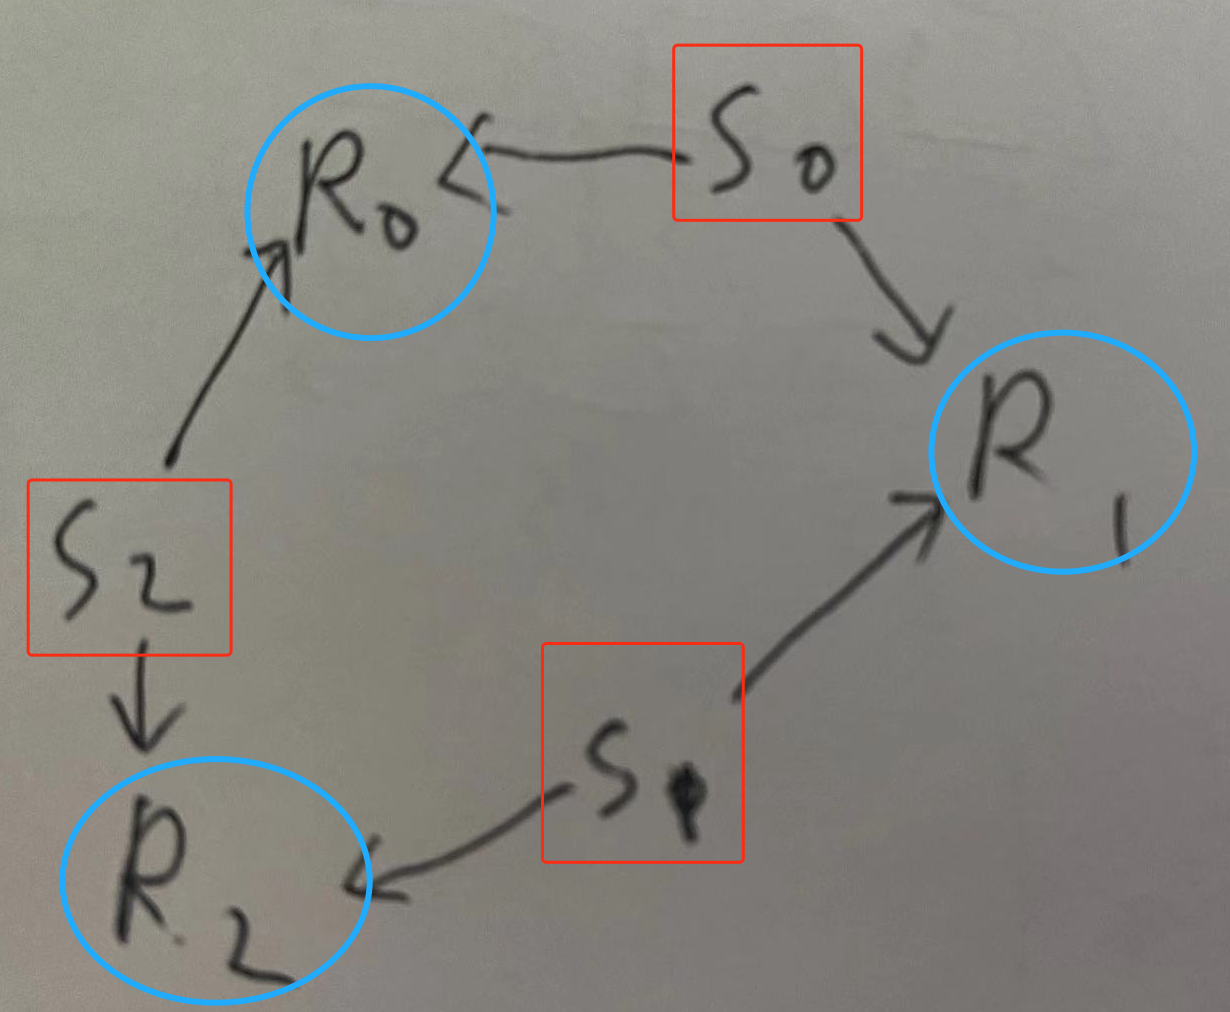 S0
R0
R1
S2
S1
R2